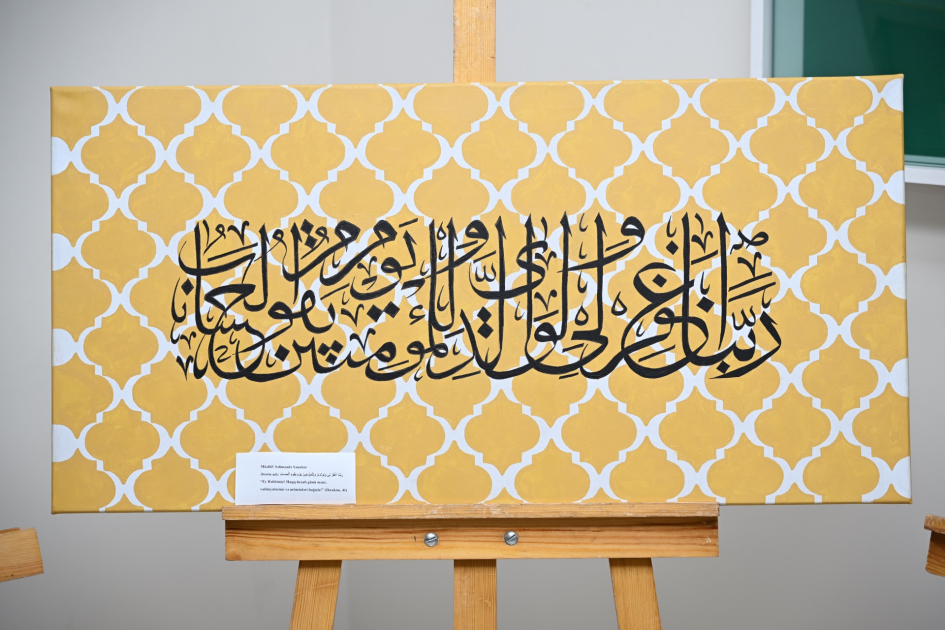 ربنا اغفر لي ولوالدي وللمؤمنين يوم يقوم الحساب
Müəllif:
Əsərin adı: ربنا اغفر لي ولوالدي وللمؤمنين يوم يقوم الحساب
"Ey Rəbbimiz! Haqq-hesab günü məni,
valideynlərimi və möminləri bağışla!" (İbrahim,